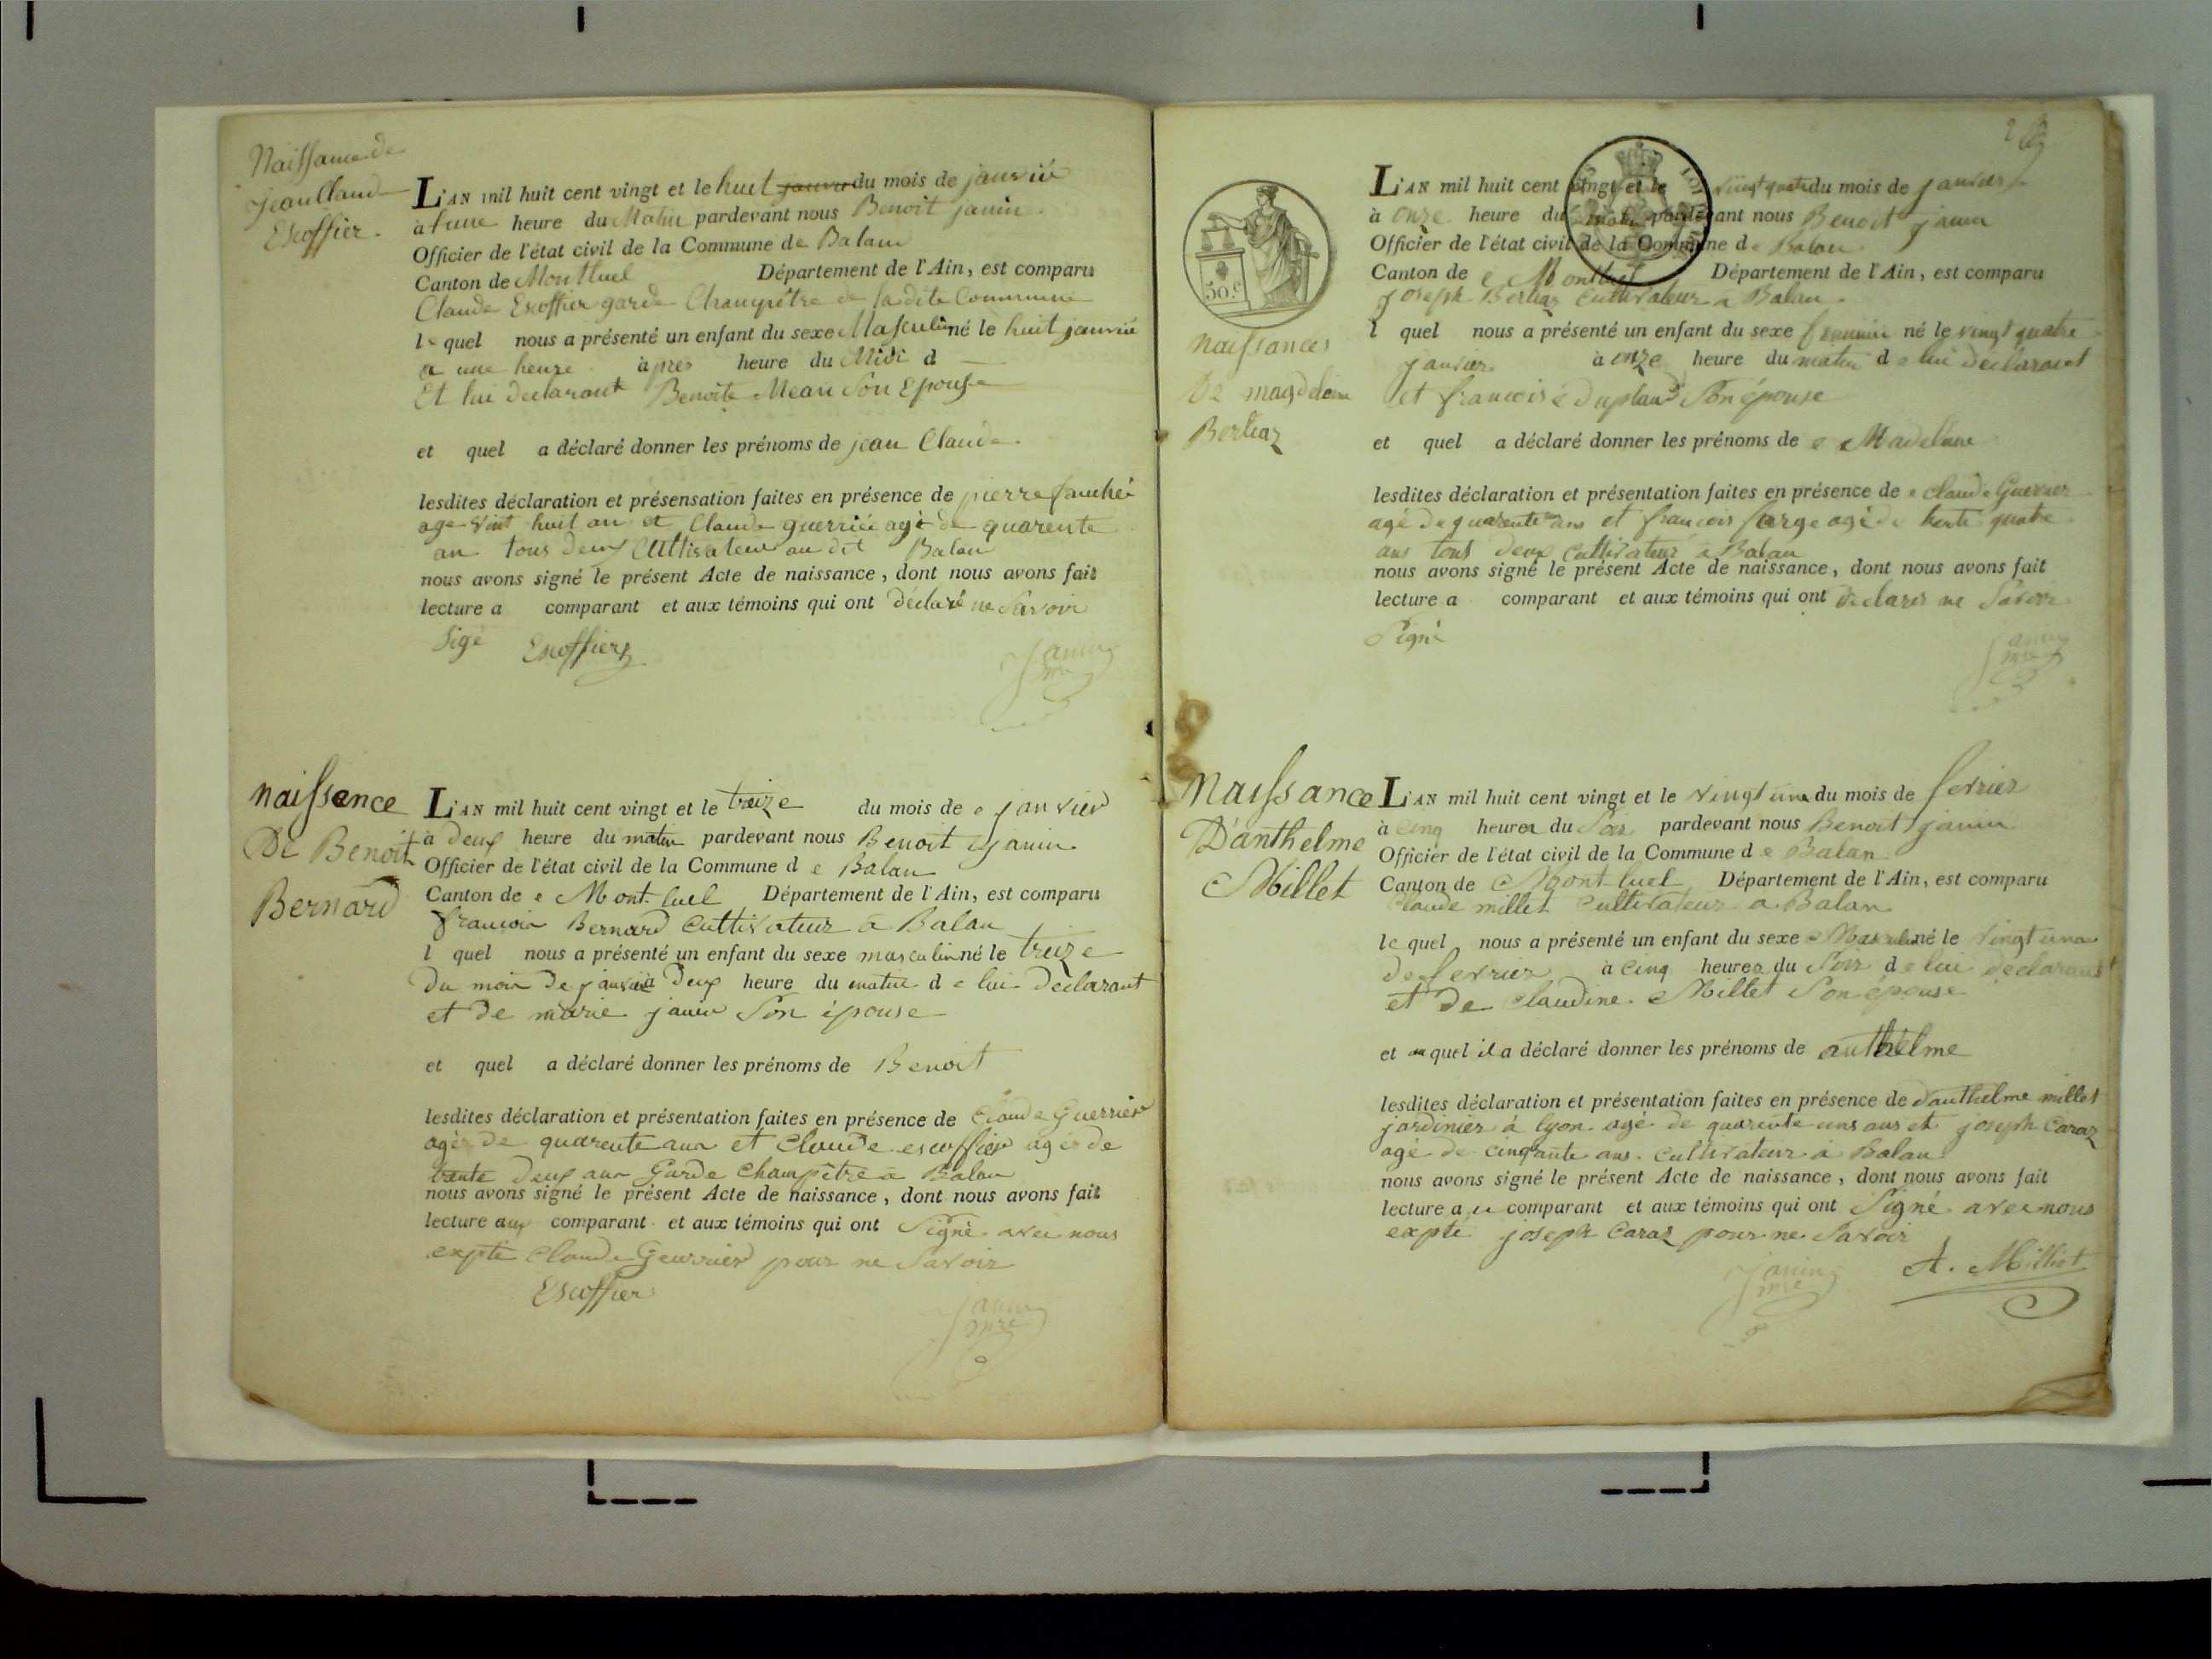 Naissance de
jean Claude
Escoffier.
L'AN mil huit cent vingt et le huit du mois de janvié
à l'une heure du Matin pardevant nous Benoit janin
Officier de l'état civil de la Commune de Balan
Canton de Montluel Département de l'Ain, est comparu
Claude Escoffier garde Champêtre de ladite Commune
le quel nous a présenté un enfant du sexe Masculin né le huit janvié
a une heure après heure du Midi d
Et lui declarant Benoîte Mean Son Epouse
et quel a déclaré donner les prénoms de jean Claude
lesdites déclaration et présensation faites en présence de pierre
age vint huit an et Claude guerriée agé de quarente
an tous deux Cultivateur au dit Balan
nous avons signé le présent Acte de naissance, dont nous avons fait
lecture a comparant et aux témoins qui ont déclaré ne Savoir
Sigé Escoffier
Janin
mre
naissence
De Benoit
Bernard
L'AN mil huit cent vingt et le treize du mois de janvier
à deux heure du matin pardevant nous Benoit janin
Officier de l'état civil de la Commune de Balan
Canton de Mont-luel Département de l'Ain, est comparu
francois Bernard Cultivateur à Balan
l quel nous a présenté un enfant du sexe masculin né le treize
du mois de janvié à deux heure du matin de lui declarant
et de marie janin Son épouse
et quel a déclaré donner les prénoms de Benoit
lesdites déclaration et présentation faites en présence de Claude Guerrier
agér de quarente ans et Claude escoffier agér de
trente deux ans Garde Champêtre à Balan
nous avons signé le présent Acte de naissance, dont nous avons fait
lecture aux comparant et aux témoins qui ont Signé avec nous
expté Claude Geurrier pour ne Savoir
Escoffier
Janin
mre
2
50.c
naissances
De magdeleine
Berliaz
L'AN mil huit cent vingt et le vingt quatre du mois de janvier
à onze heure du matin pardevant nous Benoit janin
Officier de l'état civil de la Commune de Balan
Canton de Montluel Département de l'Ain, est comparu
joseph Berliaz Cultivateur a Balan
l quel nous a présenté un enfant du sexe feminin né le vingt quatre
janvier à onze heure du matin de lui declarant
et francoise Son épouse
et quel a déclaré donner les prénoms de Madelaine
lesdites déclaration et présentation faites en présence de Claude Guerrier
agé de quarente ans et francois farge agé de trente quatre
ans tout deux Cultivateur à Balan
nous avons signé le présent Acte de naissance, dont nous avons fait
lecture a comparant et aux témoins qui ont declarer ne Savoir
Signé
Janin
mre
Naissance
D'anthelme
Millet
L'AN mil huit cent vingt et le vingt une du mois de fevrier
à cinq heures du Soir pardevant nous Benoit janin
Officier de l'état civil de la Commune de Balan
Canton de Mont-luel Département de l'Ain, est comparu
Claude millet Cultivateur a Balan
le quel nous a présenté un enfant du sexe Masculin né le vingt une
de fevrier à cinq heures du Soir de lui declarant
et de Claudine Millet Son epouse
et au quel il a déclaré donner les prénoms de anthelme
lesdites déclaration et présentation faites en présence de d'anthelme millet
jardinier à lyon agé de quarente uns ans et joseph Caraz
agé de cinqante ans. Cultivateur à Balan
nous avons signé le présent Acte de naissance, dont nous avons fait
lecture au comparant et aux témoins qui ont Signé avec nous
expté joseph Caraz pour ne Savoir
Janin
mre
A. Milliet